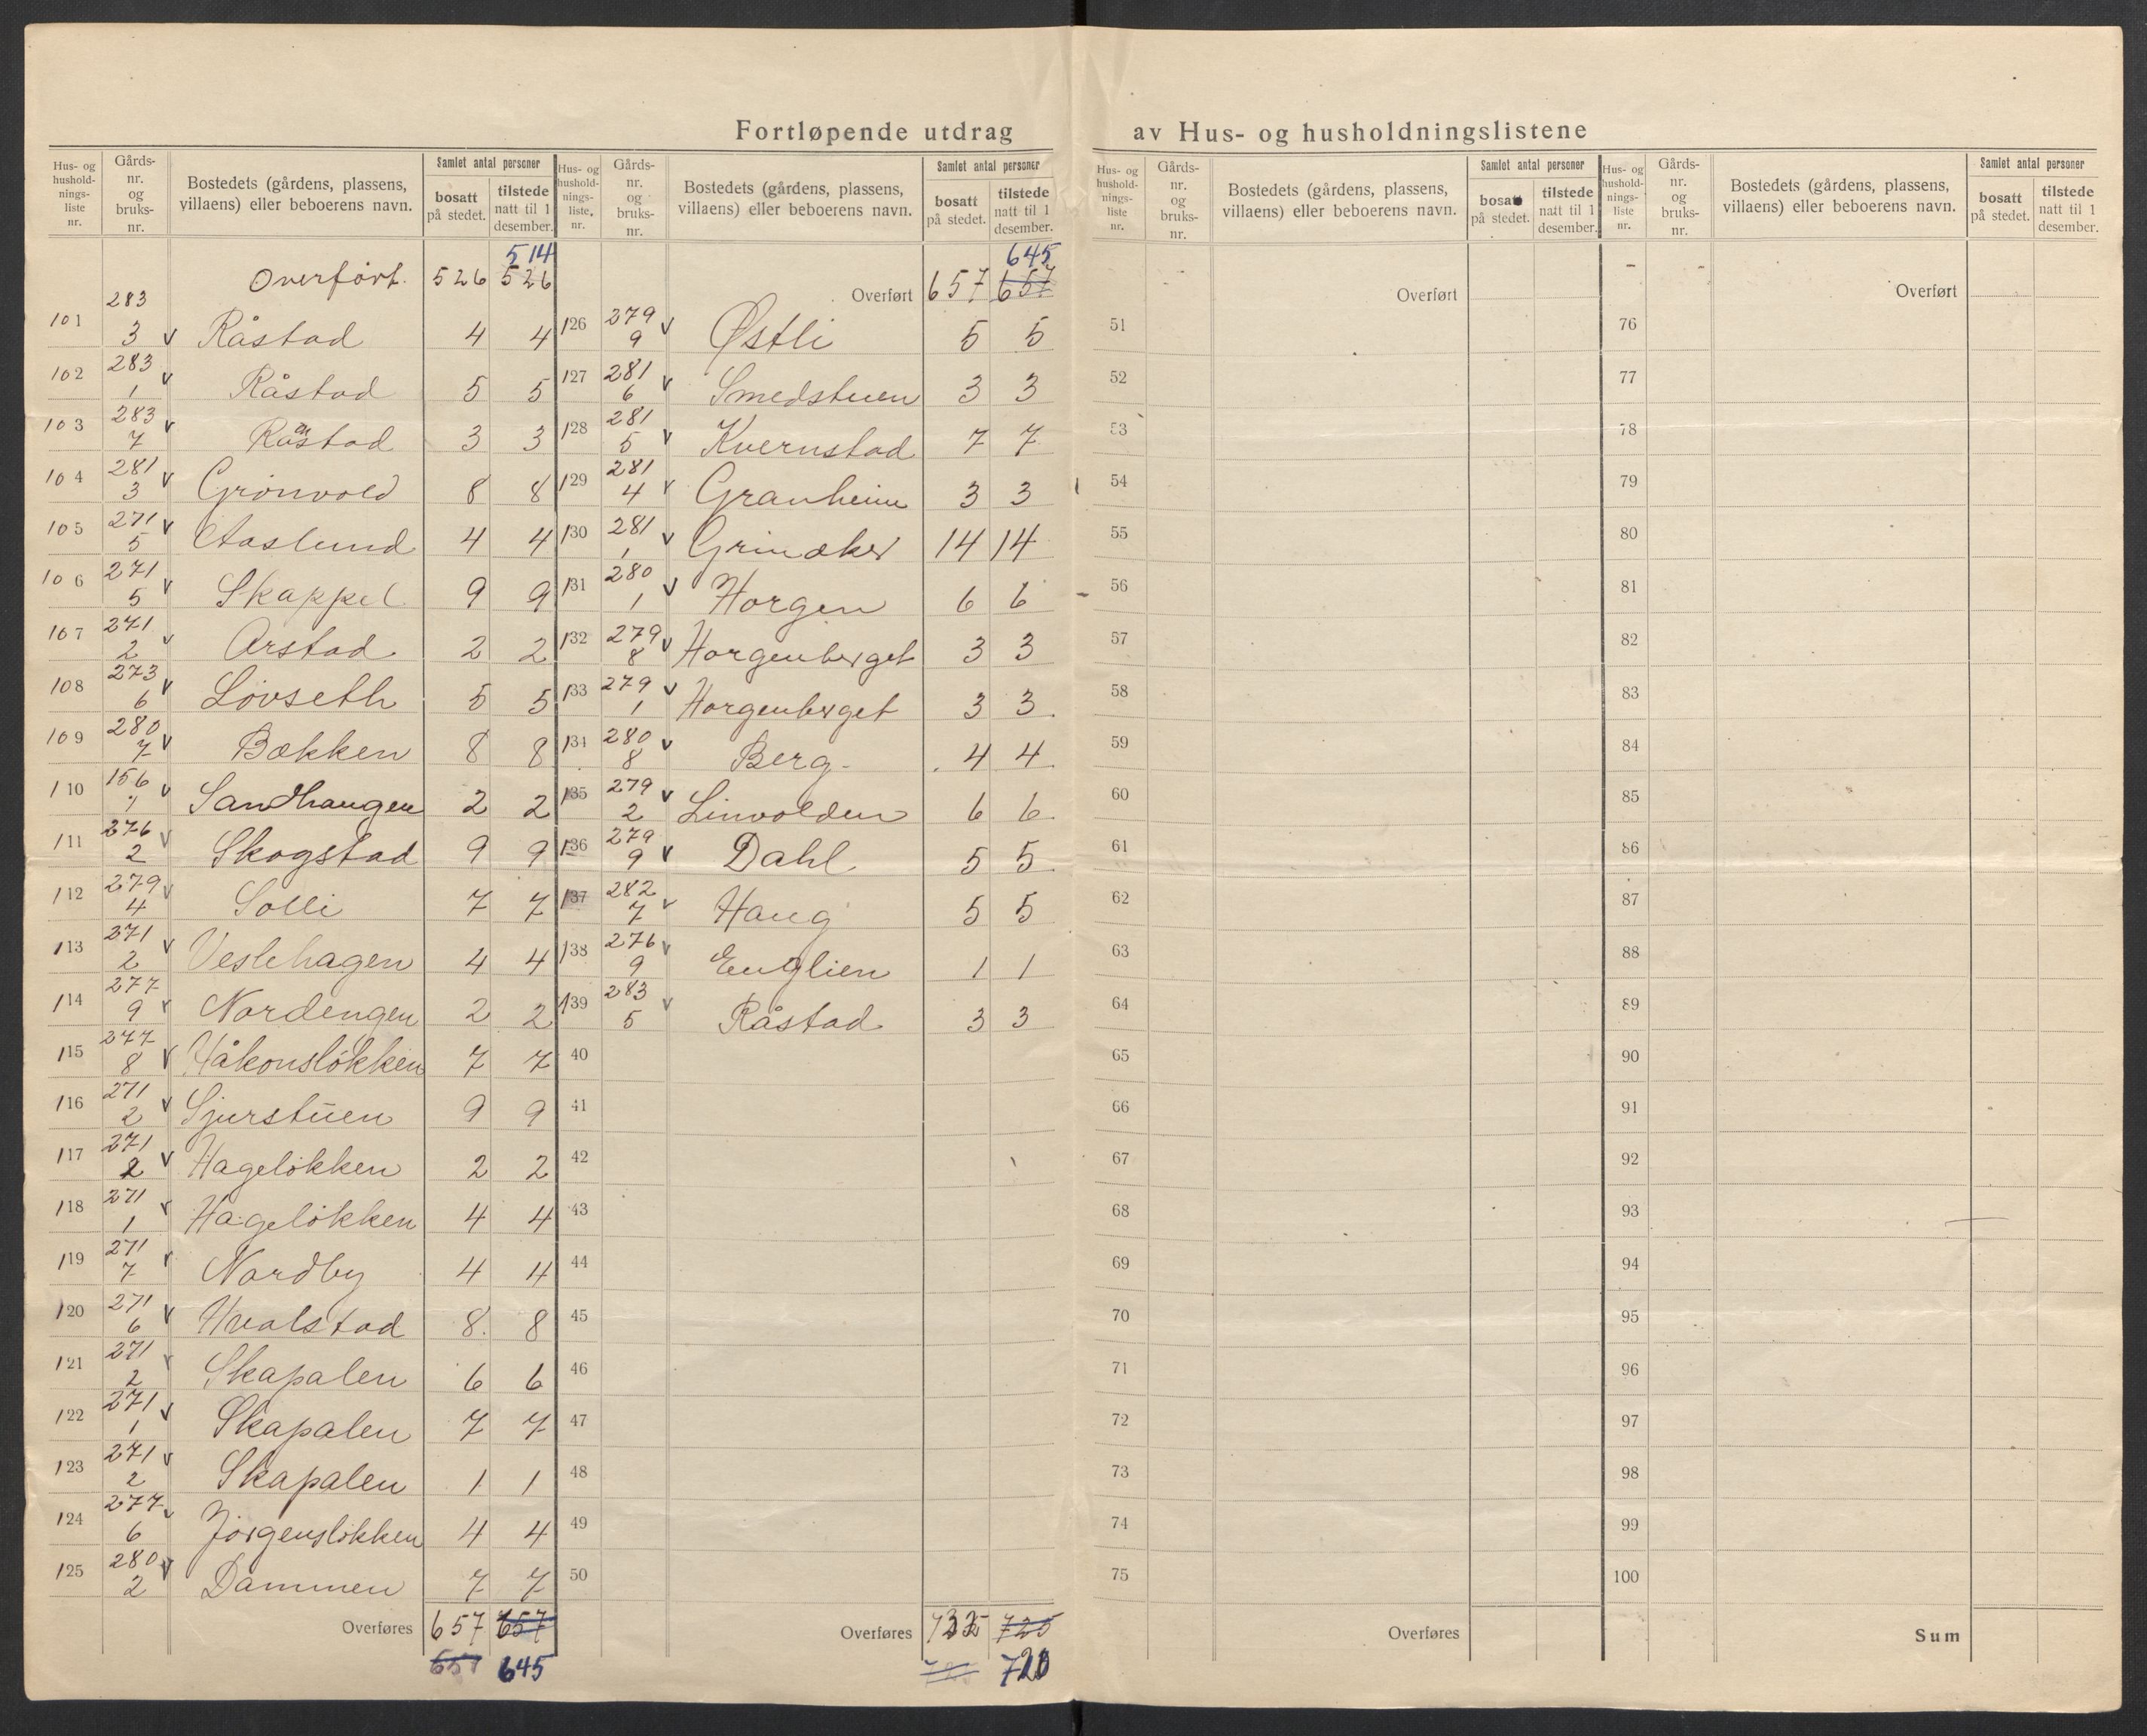 Fortløpende utdrag av Hus- og husholdningslistene
Hus- og hushold-nings-liste nr. | Gårds-nr. og bruks-nr. | Bostedets (gårdens, plassens, villaens) eller beboerens navn. | Samlet antal personer | bosatt på stedet. | tilstede natt til 1 desember.
514
Overført. 526 526
101 283 3 v Råstad 4 4
102 283 1 v Råstad 5 5
103 283 7 v Råstad 3 3
104 281 3 v Grönvold 8 8
105 271 5 v Aaslund 4 4
106 271 5 v Skappel 9 9
107 271 2 v Arstad 2 2
108 273 6 v Lövseth 5 5
109 280 7 v Bækken 8 8
110 156 1 v Sandhaugen 2 2
111 276 2 v Skogstad 9 9
112 279 4 v Solli 7 7
113 271 2 v Veslehagen 4 4
114 277 9 v Nordengen 2 2
115 277 8 v Håkonslökken 7 7
116 271 2 v Sjurstuen 9 9
117 271 2 v Hagelökken 2 2
118 271 1 v Hagelökken 4 4
119 271 7 v Nordby 4 4
120 271 6 v Hvalstad 8 8
121 271 2 v Skapalen 6 6
122 271 1 v Skapalen 7 7
123 271 2 v Skapalen 1 1
124 277 6 v Jörgenslökken 4 4
125 280 2 v Dammen 7 7
Overføres 657 657
657 645
Hus- og hushold-nings-liste, nr. | Gårds-nr. og bruks-nr. | Bostedets (gårdens, plassens, villaens) eller beboerens navn. | Samlet antal personer | bosatt på stedet. | tilstede natt til 1 desember.
645
Overført 657 657
126 279 9 v Østli 5 5
127 281 6 v Smedstuen 3 3
128 281 5 v Kvernstad 7 7
129 281 4 v Granheim 3 3
130 281 1 v Grinaker 14 14
131 280 1 v Horgen 6 6
132 279 8 v Horgenberget 3 3
133 279 1 v Horgenberget 3 3
134 280 8 v Berg 4 4
135 279 2 v Linvolden 6 6
136 279 9 v Dahl 5 5
137 282 7 v Haug 5 5
138 276 9 v Englien 1 1
139 283 5 v Råstad 3 3
40
41
42
43
44
45
46
47
48
49
50
Overføres 725
720
Hus- og hushold-nings-liste nr. | Gårds-nr. og bruks-nr. | Bostedets (gårdens, plassens, villaens) eller beboerens navn. | Samlet antal personer | bosatt på stedet. | tilstede natt til 1 desember.
Overført
51
52
53
54
55
56
57
58
59
60
61
62
63
64
65
66
67
68
69
70
71
72
73
74
75
Overføres
Hus- og hushold-nings-liste nr. | Gårds-nr. og bruks-nr. | Bostedets (gårdens, plassens, villaens) eller beboerens navn. | Samlet antal personer | bosatt på stedet. | tilstede natt til 1 desember.
Overført
76
77
78
79
80
81
82
83
84
85
86
87
88
89
90
91
92
93
94
95
96
97
98
99
100
Sum